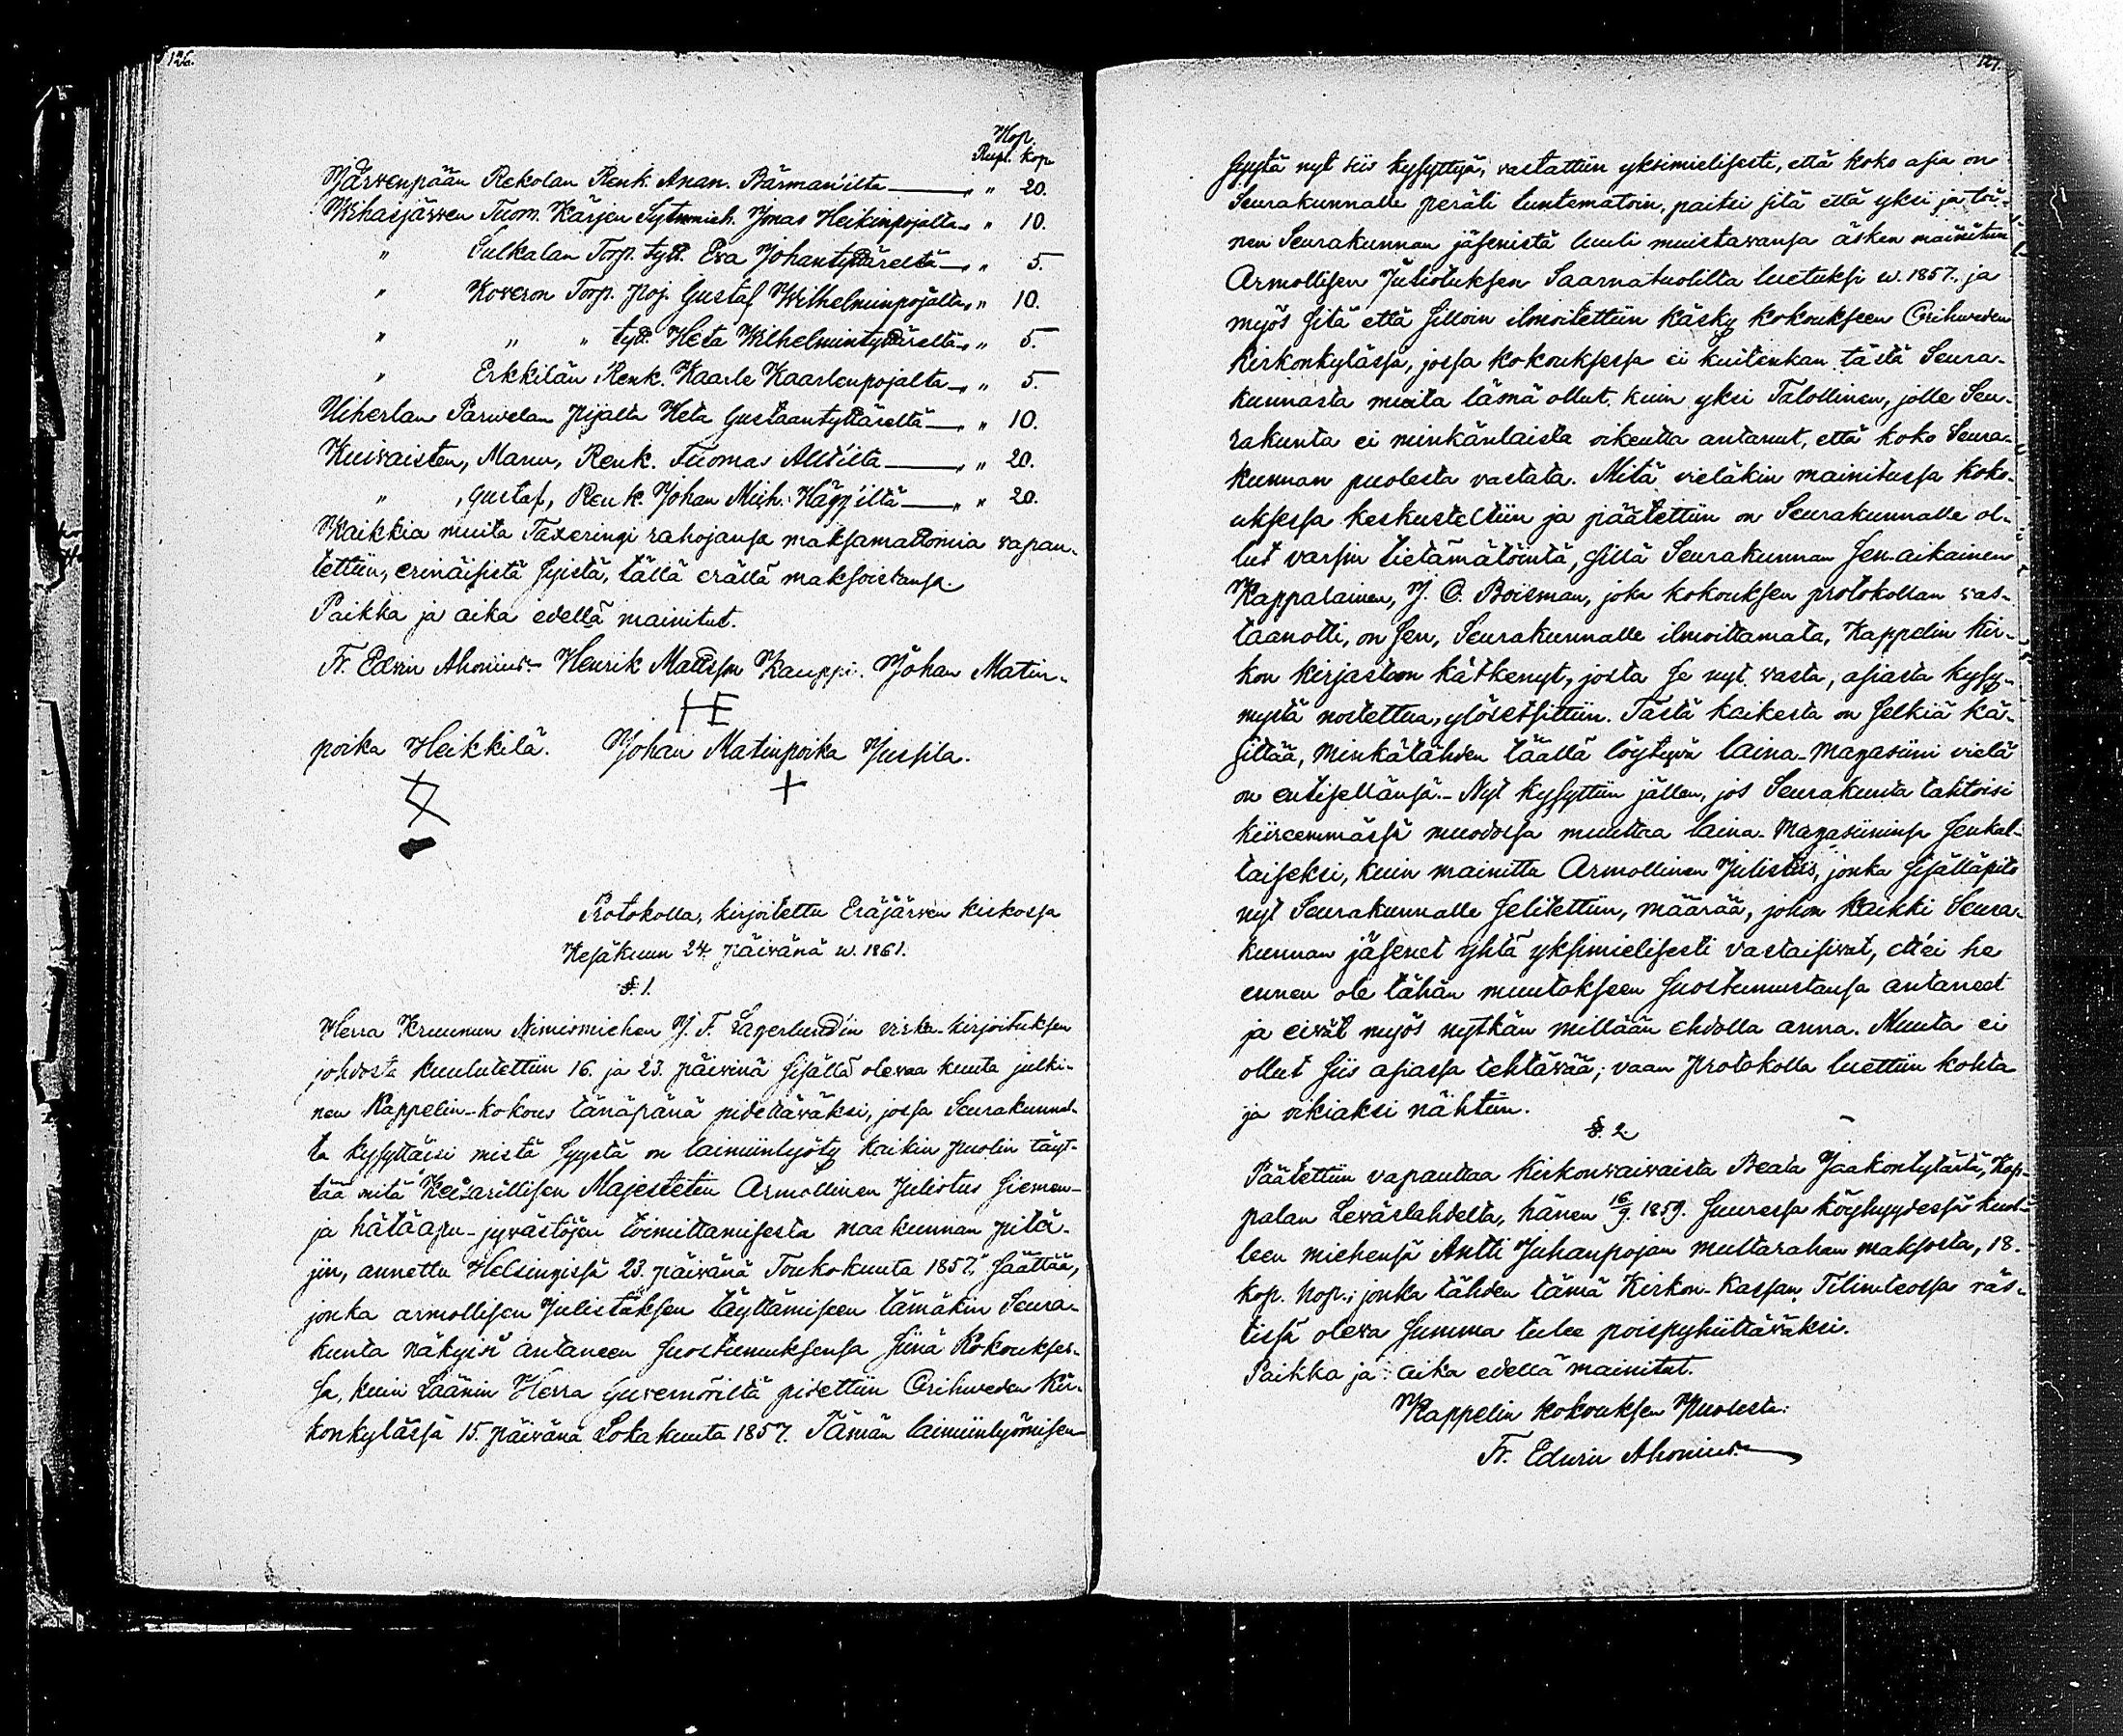 126.
Hop.
Rupl. Kop.
Järvenpään Rekolan Renk. Anan. Bärman'ilta — „ 20.
Wihasjärven Tuom. Kärjen Sytmmieh. Jonas Heikinpojalta „ 10.
„ Sulkalan Torp. tyt. Eva Johantyttäreltä — „ 5.
„ Koveron Torp. Poj. Gustaf Wilhelminpojalta „ 10.
„ „ „ tyt. Heta Wilhelmintyttäreltä „ 5.
„ Erkkilän Renk. Kaarle Kaarlenpojalta — „ 5.
Uiherlan Parwelan Pijalta Heta Gustaantyttäreltä — „ 10.
Kuivaisten, Manu, Renk. Tuomas Alli'ilta — „ 20.
„ , Gustaf, Renk. Johan Mich. Hägg'iltä — „ 20.
Kaikkia muita Taxeringi rahojansa maksamattomia vapau-
tettiin, erinäisistä syistä, tällä erällä maksoistansa.
Paikka ja aika edellä mainitut.
Fr. Edvin Ahonius. Henrik Mattsson Kauppi. Johan Matin-
HE
poika Heikkilä. Johan Matinpoika Jussila.
+
Protokolla, kirjoitettu Eräjärven kirkossa
Kesäkuun 24. päivänä w. 1861.
§. 1.
Herra Kruunun Nimismiehen J. F. Lagerlund'in virka-kirjoituksen
johdosta kuulutettiin 16. ja 23. päivinä sisällä olevaa kuuta julki-
nen Kappelin-kokous tänäpänä pidettäväksi, jossa Seurakunnal-
ta kysyttäisi mistä syystä on laiminlyöty kaikin puolin täyt-
tää mitä Keisarillisen Majestetin Armollinen Julistus siemen-
ja hätäapu-jyvästöjen toimittamisesta maakunnan pitä-
jiin, annettu Helsingissä 23. päivänä Toukokuuta 1857, säättää,
jonka armollisen Julistuksen täyttämiseen tämäkin Seura-
kunta näkyisi antaneen suostumuksensa siinä Kokoukses-
sa, kuin Läänin Herra Guvernöriltä pidettiin Orihweden Kir-
konkylässä 15. päivänä Lokakuuta 1857. Tämän laiminlyömisen
127.
syytä nyt siis kysyttyä, vastattiin yksimielisesti, että koko asia on
Seurakunnalle peräti tuntematoin, paitsi sitä että yksi ja toi-
nen Seurakunnan jäsenistä luuli muistavansa äsken mainitun
Armollisen Julistuksen Saarnatuolilta luetuksi w. 1857, ja
myös sitä että silloin ilmoitettiin käsky kokoukseen Orihweden
kirkonkylässä, jossa kokouksessa ei kuitenkan tästä Seura-
kunnasta muita läsnä ollut kuin yksi Talollinen, jolle Seu-
rakunta ei minkänlaista oikeutta antanut, että koko Seura-
kunnan puolesta vastata. Mitä vieläkin mainitussa koko-
uksessa keskusteltiin ja päätettiin on Seurakunnalle ol-
lut varsin tietämätöintä, sillä Seurakunnan senaikainen
Kappalainen, J. G. Boisman, joka kokouksen protokollan vas-
taanotti, on sen, Seurakunnalle ilmoittamata, Kappelin kir-
kon kirjastoon kätkenyt, josta se nyt vasta, asiasta kysy-
mystä nostettua, ylösetsittiin. Tästä kaikesta on selkiä kä-
sittää, minkätähden täällä löytyvä laina-magasiini vielä
on entisellänsä. - Nyt kysyttiin jällen, jos Seurakunta tahtoisi
kiireemmässä muodossa muuttaa laina-magasiininsa senkal-
taiseksi, kuin mainittu Armollinen Julistus, jonka sisälläpito
nyt Seurakunnalle selitettiin, määrää, johon kaikki Seura-
kunnan jäsenet yhtä yksimielisesti vastaisivat, ett'ei he
ennen ole tähän muutokseen suostumustansa antaneet
ja eivät myös nytkän millään ehdolla anna. Muuta ei
ollut siis asiassa tehtävää; vaan protokolla luettiin kohta
ja oikiaksi nähtiin.
§. 2.
Päätettiin vapauttaa Kirkonvaivaista Beata Jaakontytärtä, Kop-
palan Leväslahdelta, hänen 16/9. 1859. suuressa köyhyydessä kuol-
leen miehensä Antti Juhanpojan multarahan maksosta, 18.
kop. hop.; jonka tähden tämä Kirkon-Kassan Tilinteossa räs-
tissä oleva summa tulee poispyhittäväksi.
Paikka ja aika edellä mainitut.
Kappelin kokouksen Puolesta:
Fr. Edwin Ahonius.